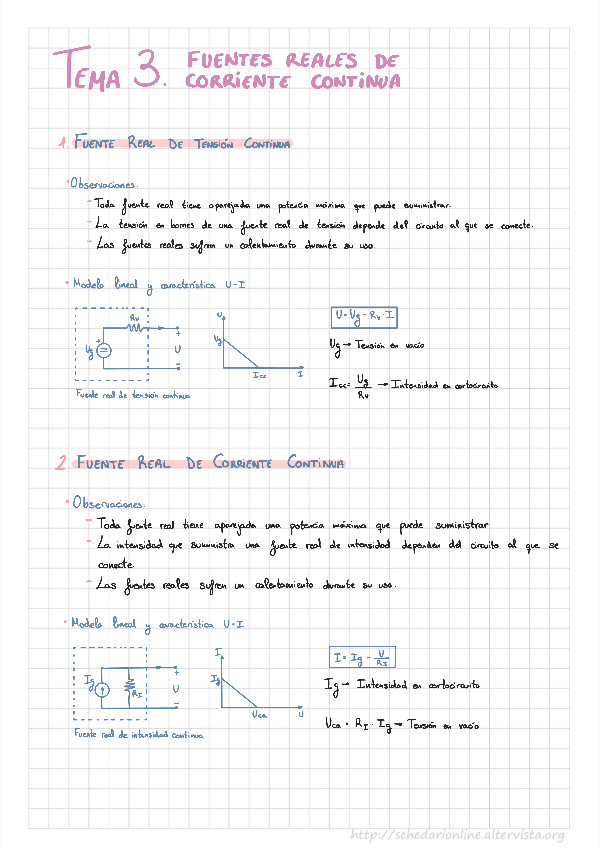 TEMA 3. FUENTES REALES DE
CORRIENTE CONTINUA
1. FUENTE REAL DE TENSIÓN CONTINUA
• Observaciones.
- Toda fuente real tiene aparejada una potencia máxima que puede suministrar.
- La tensión en bornes de una fuente real de tensión depende del circuito al que se conecte.
- Las fuentes reales sufren un calentamiento durante su uso.
• Modelo lineal y característica U-I
Rv
+
Ug
+
U
-
Fuente real de tensión continua
U
Ug
Icc
I
U = Ug - Rv · I
Ug → Tensión en vacío
Icc = Ug / Rv → Intensidad en cortocircuito
2. FUENTE REAL DE CORRIENTE CONTINUA
• Observaciones.
- Toda fuente real tiene aparejada una potencia máxima que puede suministrar
- La intensidad que suministra una fuente real de intensidad dependen del circuito al que se
conecte.
- Las fuentes reales sufren un calentamiento durante su uso.
• Modelo lineal y característica U-I
Ig
RI
+
U
-
Fuente real de intensidad continua
I
Ig
Uca
U
I = Ig - U / RI
Ig → Intensidad en cortocircuito
Uca = RI · Ig → Tensión en vacío
http://schedarionline.altervista.org